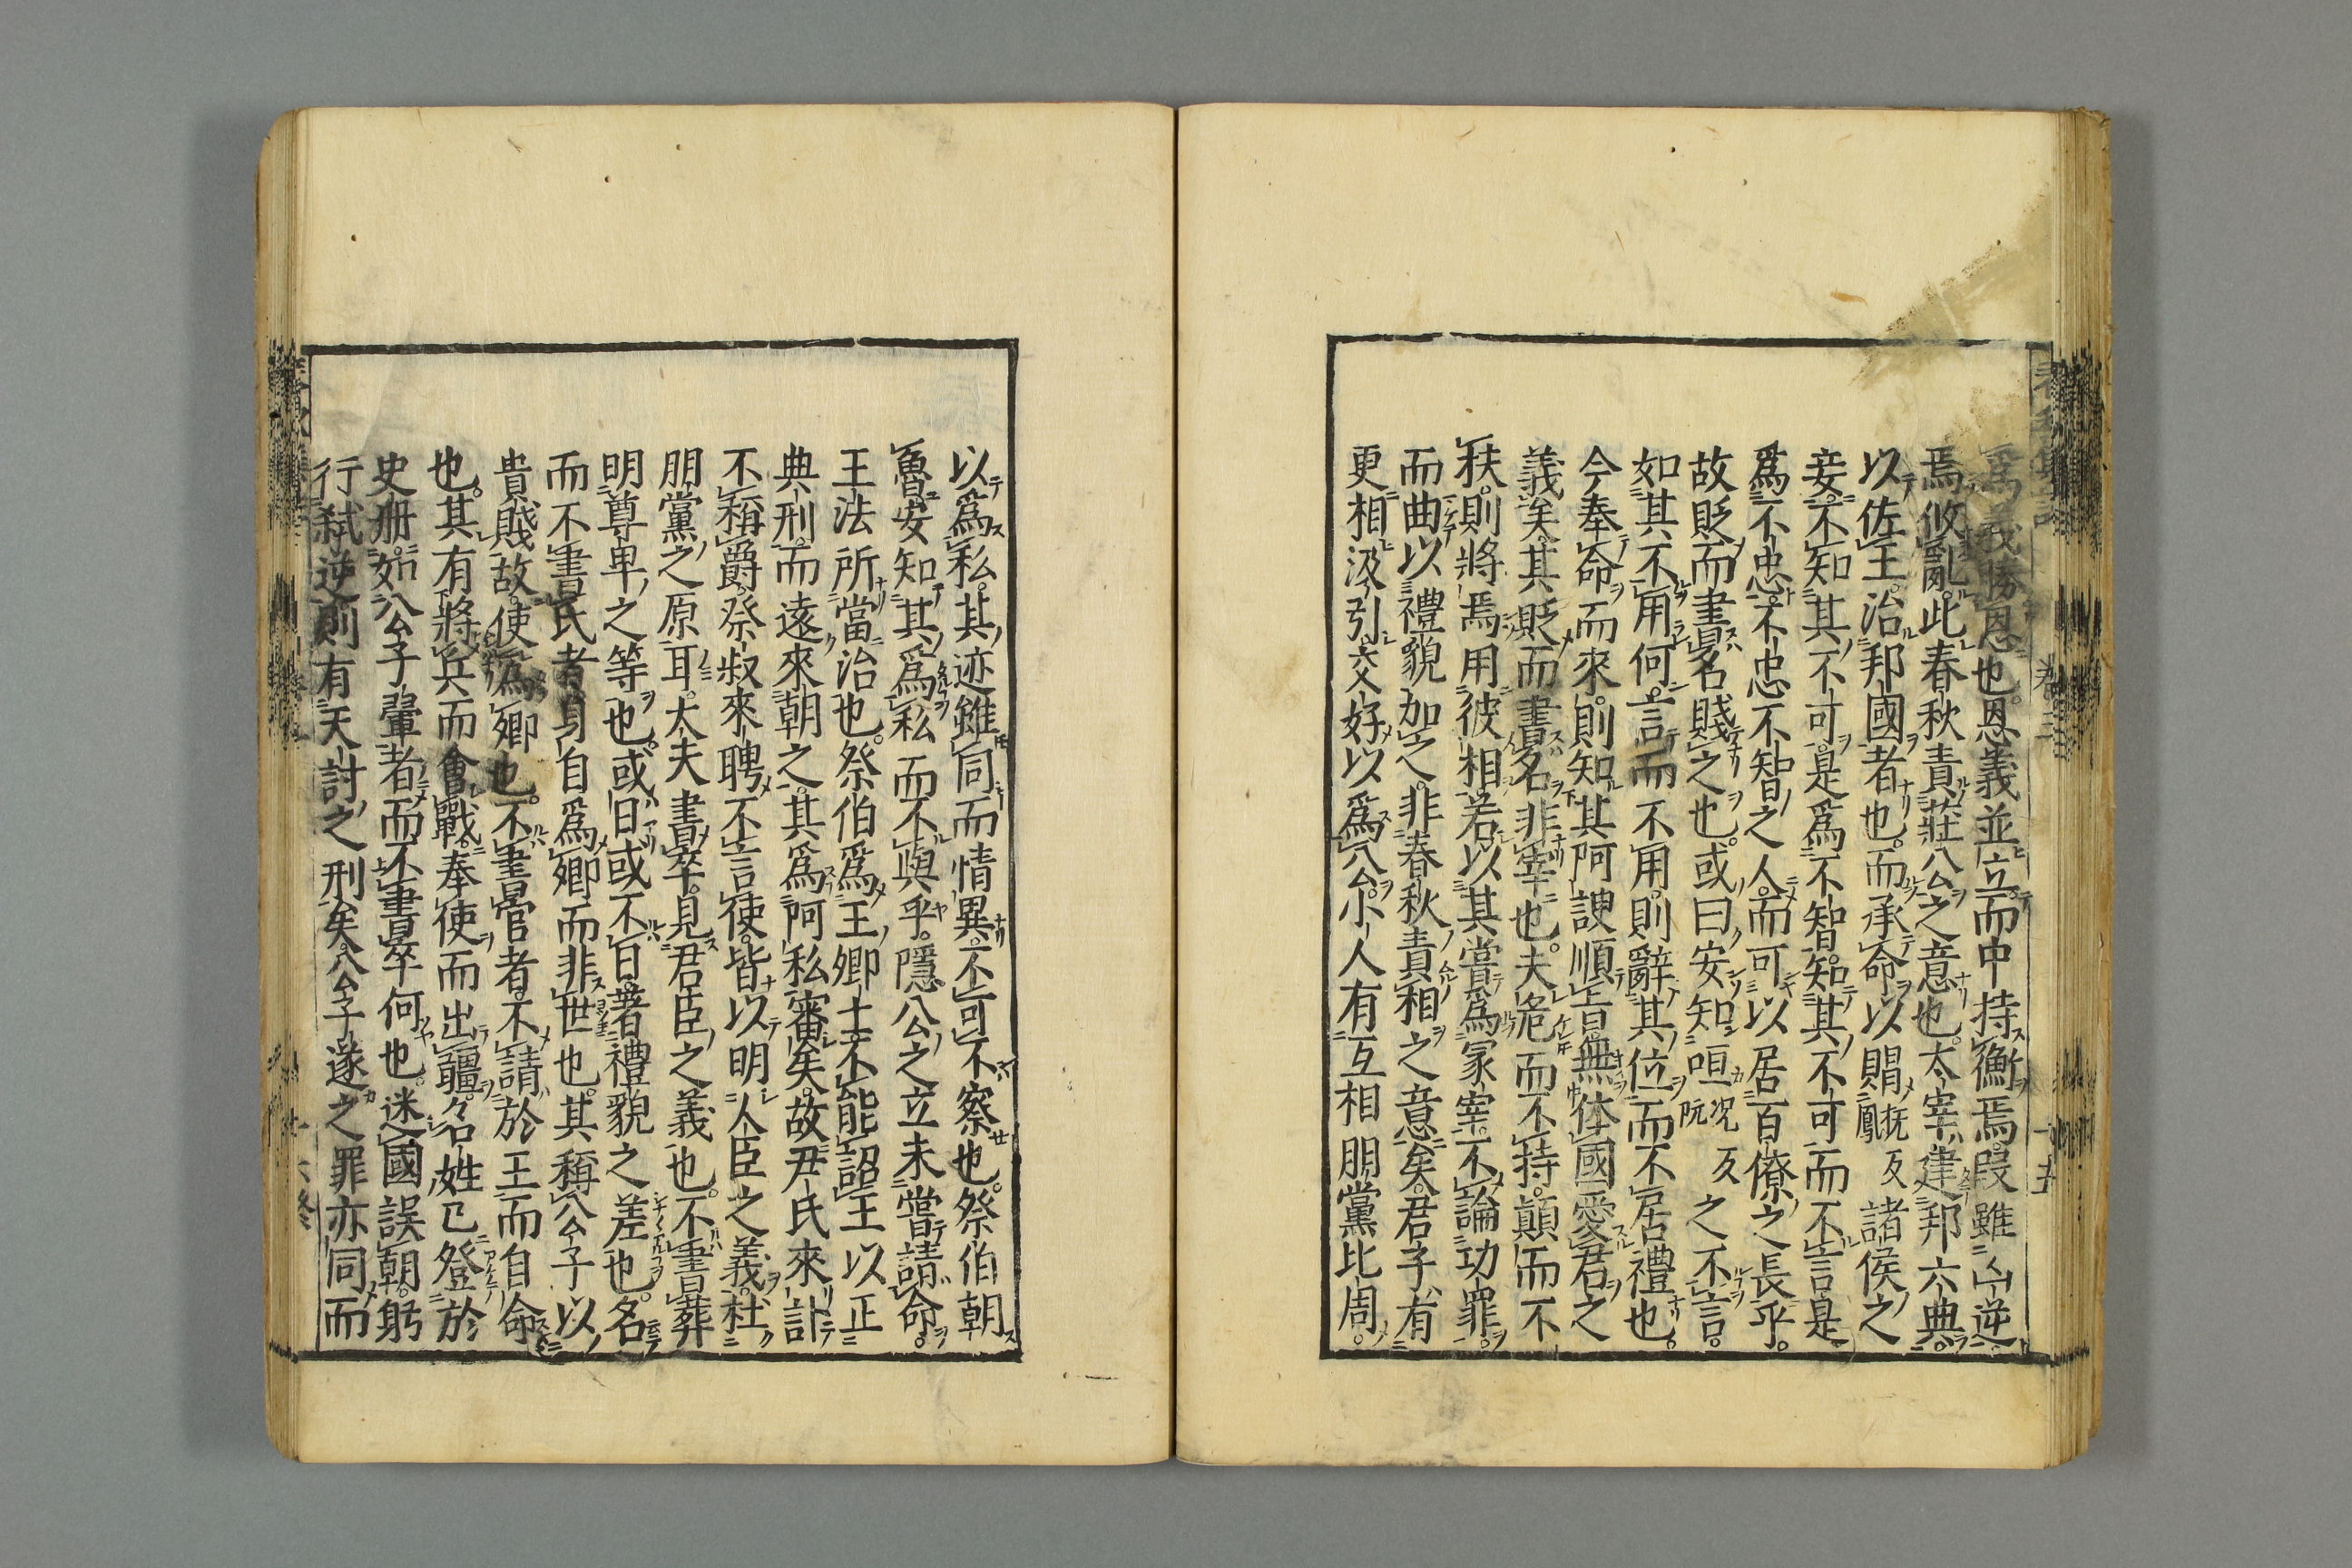 爲義勝恩也。恩義並立。而中持衡焉。叚雖凶逆
焉攸亂。此春秋責莊公之意也。太宰建邦六典。
以佐王。治邦國者也。而承命以賵撫鳳反諸侯之
妾。不知其不可。是爲不智。知其不可而不言。是
爲不忠。不忠不智之人。而可以居百僚之長乎。
故貶而書名賤之也。或曰安知咺况阮反之不言。
如其不用何。言而不用。則辭其位而不居禮也。
今奉命而來。則知其阿諛順旨。無体國愛君之
義矣。其貶而書名。非宰也。夫危而不持。顛而不
扶。則將焉用彼相。若以其嘗爲冡宰。不論功罪。
而曲以禮貌加之。非春秋責相之意矣。君子有
更相汲引。交好以爲公。小人有互相朋黨比周。
以爲私。其迹雖同而情異。不可不察也。祭伯朝
魯。安知其爲私而不與乎。隱公之立未嘗請命。
王法所當治也。祭伯爲王卿士。不能詔王以正
典刑。而遠來朝之。其爲阿私審矣。故尹氏來訃
不稱爵。祭叔來聘不言使。皆以明人臣之義。杜
朋黨之原耳。大夫書卒。見君臣之義也。不書葬
明尊卑之等也。或日或不日。著禮貌之差也。名
而不書氏者。身自爲卿而非世也。其稱公子以
貴賤故。使爲卿也。不書官者。不請於王而自命
也。其有將兵而會戰。奉使而出疆。名姓已登於
史册。如公子翬者。而不書卒何也。迷國誤朝。躬
行弑逆。則有天討之刑矣。公子遂之罪亦同。而